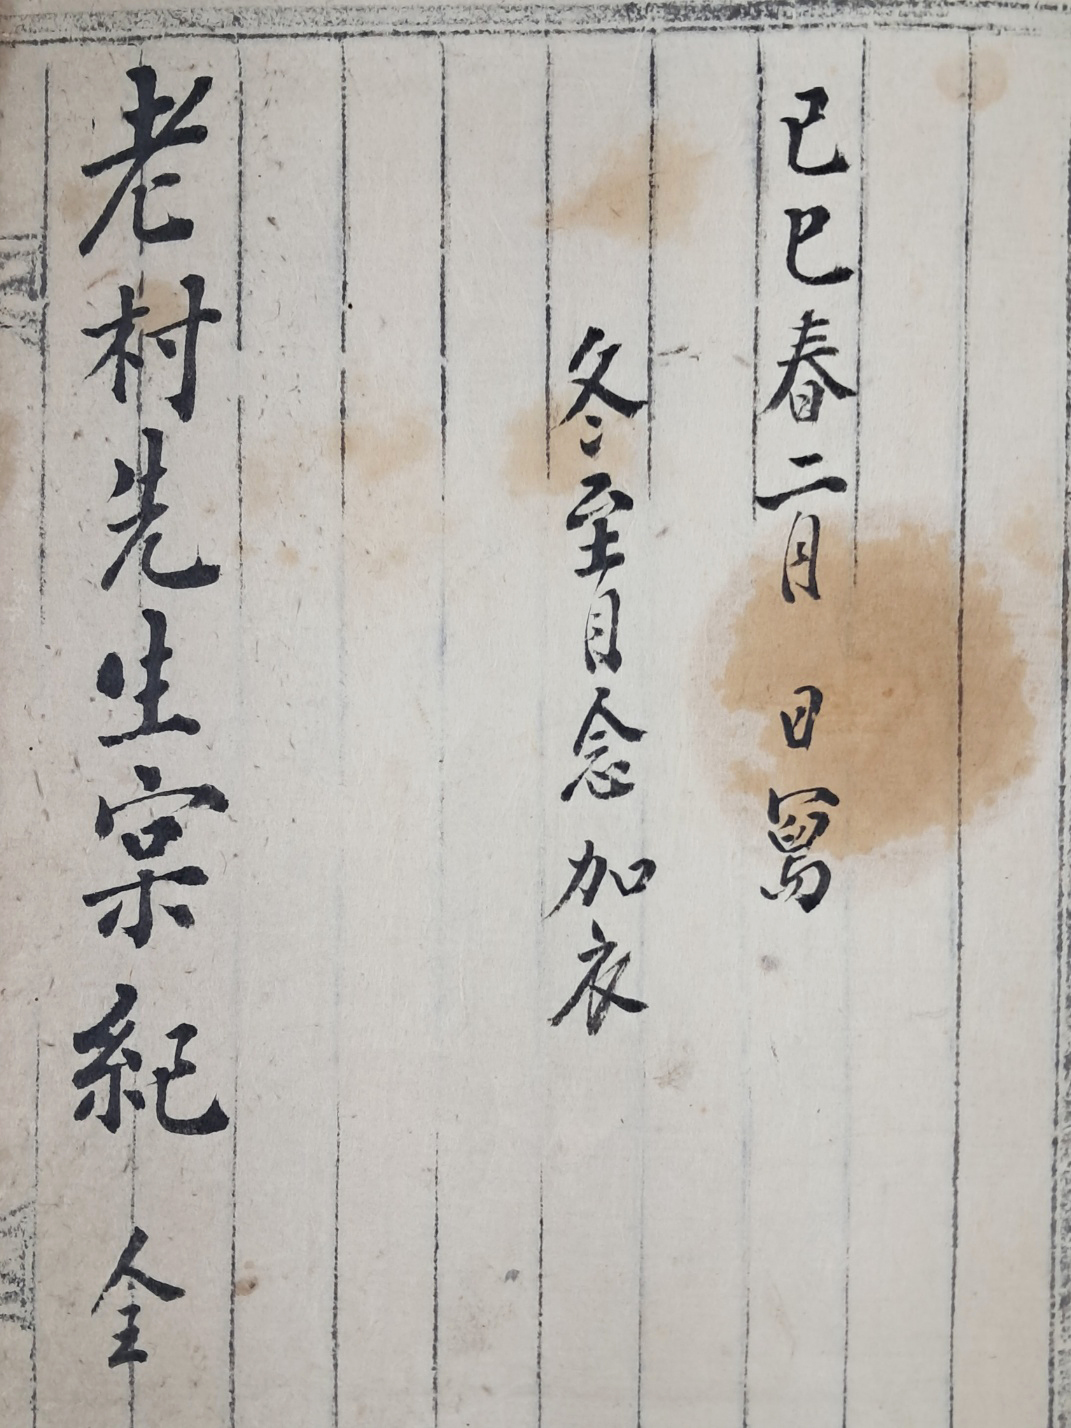 己巳春二月 日冩
冬至日念加衣
老村先生宲紀 全